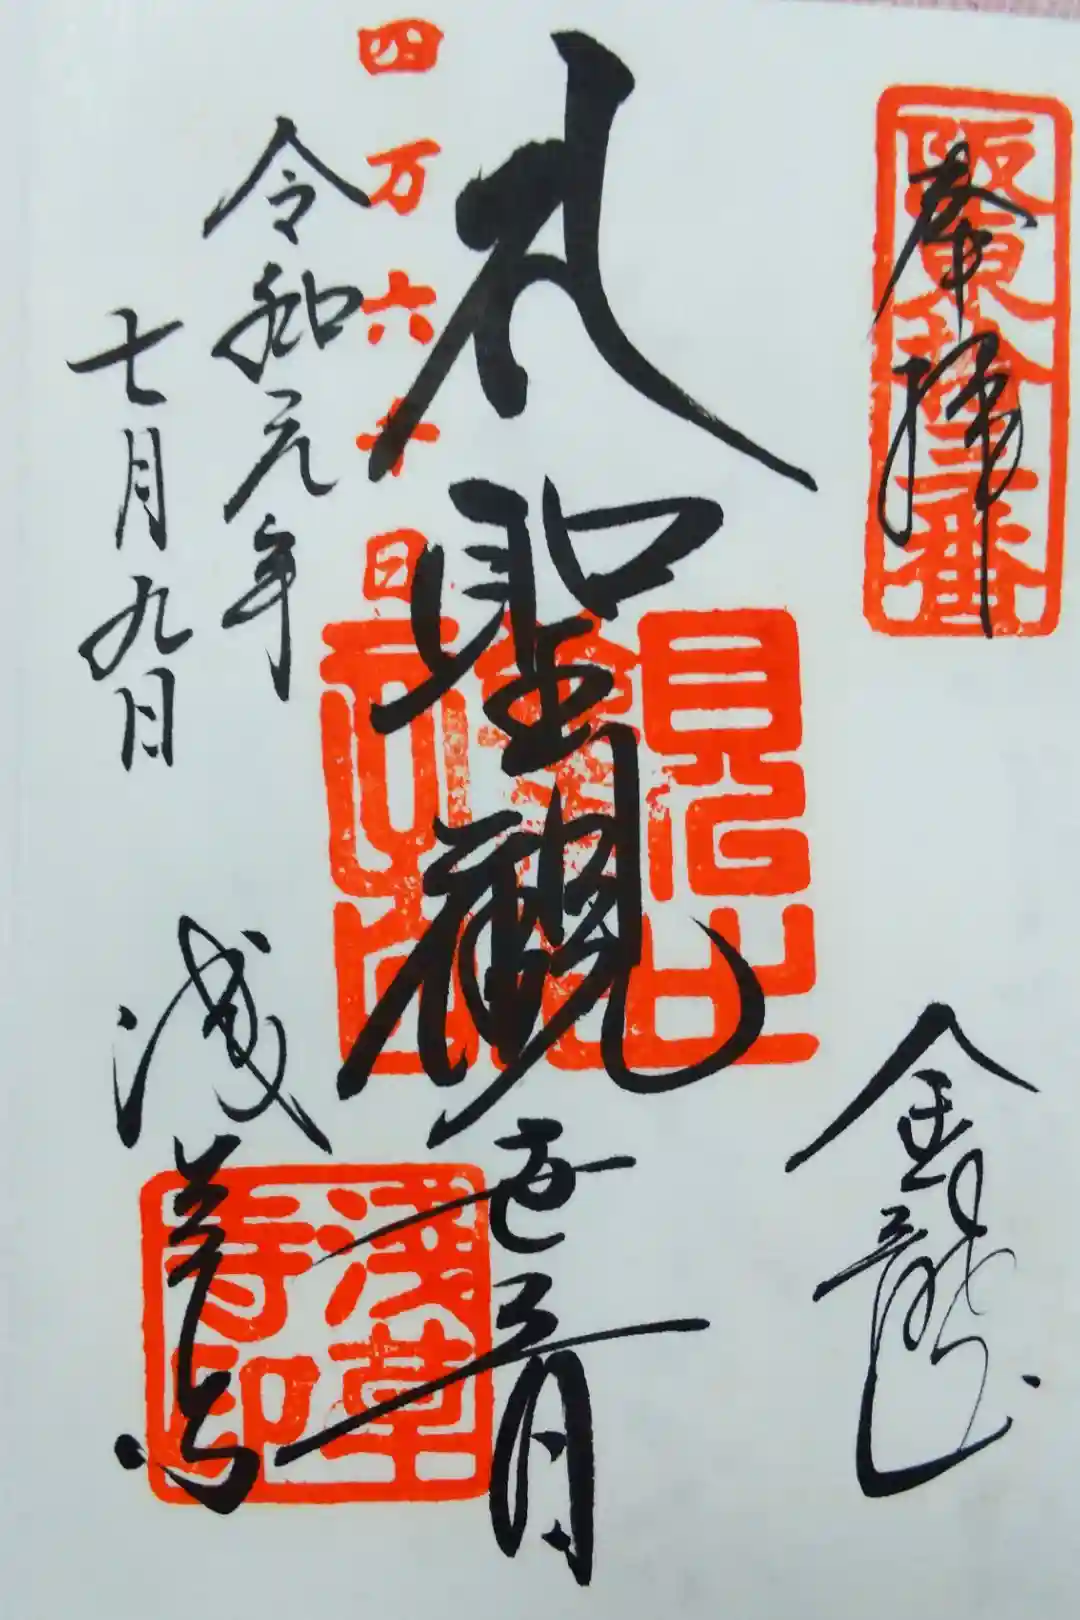 阪東拾三番
奉拝
金龍山
礼聖観世音
四万六千日
令和元年
七月九日
浅草寺
淺草寺印